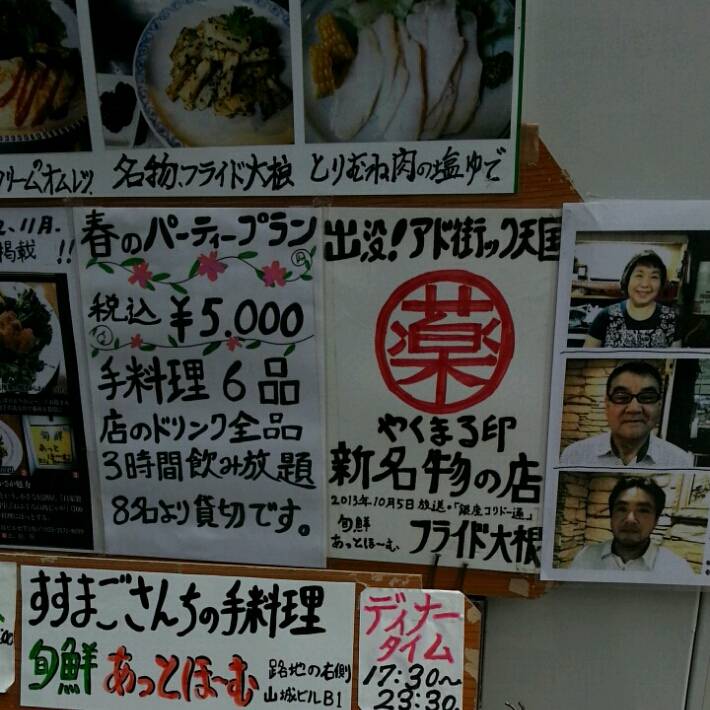 リームオムレツ
名物、フライド大根
とりむね肉の塩ゆで
11月.
掲載!!
春のパーティープラン
税込 ¥5.000
手料理 6品
店のドリンク全品
3時間飲み放題
8名より貸切です。
旬鮮
あっとほーむ
出没!アド街ック天国
薬
やくまる印
新名物の店
2013年10月5日放送・「銀座コリドー通」
旬鮮
あっとほーむ
フライド大根
すすまごさんちの手料理
旬鮮 あっとほーむ
路地の右側
山城ビルB1
ディナー
タイム
17:30~
23:30.